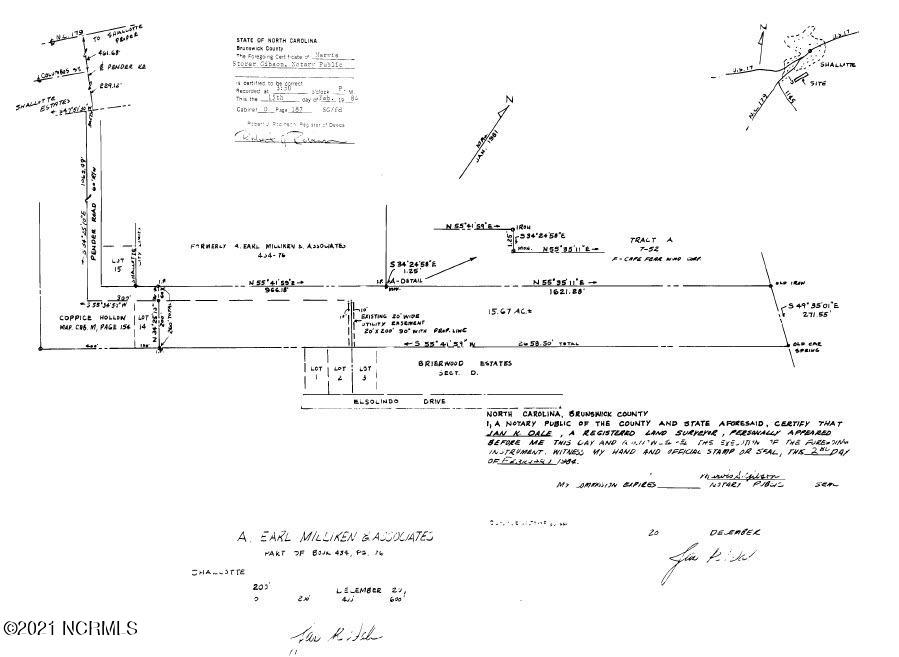 N.C. 179
TO SHALLOTTE PROPER
461.68'
COLUMBUS ST.
PENDER RD.
229.12'
SHALLOTTE ESTATES
STATE OF NORTH CAROLINA
Brunswick County
The Foregoing Certificate of Marvis
Storer Gibson, Notary Public
is certified to be correct
Recorded at 3:50 o'clock P. M.
This the 15th day of Feb. 19 84
Cabinet O Page 187
Robert J. Robinson Register of Deeds
N
JAN. 1981
N
U.S. 17
U.S. 17
SHALLOTTE
SITE
N.C. 179
1165
1062.99'
S 34°25'10"E
PENDER ROAD
60' R/W
FORMERLY A. EARL MILLIKEN & ASSOCIATES
454-76
N 55°41'59"E
IRON
1.25'
S 34°24'58"E
N 55°35'11"E
TRACT A
T-52
F-CAPE FEAR WOOD CORP.
LOT
15
SHALLOTTE
CITY LIMITS
S 34°24'58"E
1.25'
A-DETAIL
N 55°41'59"E
966.18'
N 55°35'11"E
1621.28'
OLD IRON
300'
S 55°34'50"W
COPPICE HOLLOW
MAP. CAB. M, PAGE 156
LOT
14
200'
260' TOTAL
10'
10'
EXISTING 20' WIDE
UTILITY EASEMENT
20'X200' 90° WITH PROP. LINE
15.67 AC.±
S 49°35'01"E
271.55'
S 55°41'59"W
2658.50' TOTAL
OLD CAR
SPRING
BRIERWOOD ESTATES
SECT. D.
LOT 1
LOT 2
LOT 3
ELSOLINDO DRIVE
NORTH CAROLINA, BRUNSWICK COUNTY
I, A NOTARY PUBLIC OF THE COUNTY AND STATE AFORESAID, CERTIFY THAT
JAN K. DALE, A REGISTERED LAND SURVEYOR, PERSONALLY APPEARED
BEFORE ME THIS DAY AND THE EXECUTION OF THE FOREGOING
INSTRUMENT. WITNESS MY HAND AND OFFICIAL STAMP OR SEAL, THIS 2ND DAY
OF FEBRUARY 1984.
MY COMMISSION EXPIRES NOTARY PUBLIC SEAL
A. EARL MILLIKEN & ASSOCIATES
PART OF BOOK 454, PG. 76
SHALLOTTE
200'
DECEMBER 20,
0 200 400 600'
20 DECEMBER
©2021 NCRMLS